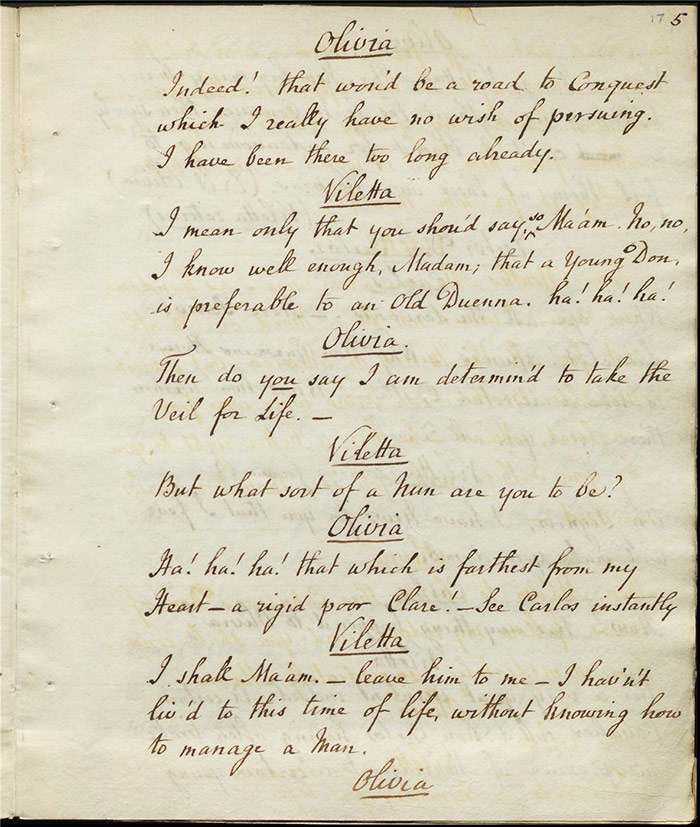 17 5
Olivia
Indeed! that wou'd be a road to Conquest
which I really have no wish of persuing.
I have been there too long already.
Viletta
I mean only that you shou'd say so Ma'am. No, no,
I know well enough, Madam, that a Young Don,
is preferable to an Old Duenna. ha! ha! ha!
Olivia.
Then do you say I am determin'd to take the
Veil for Life. —
Viletta
But what sort of a Nun are you to be?
Olivia
Ha! ha! ha! that which is farthest from my
Heart — a rigid poor Clare! — See Carlos instantly
Viletta
I shall Ma'am. — leave him to me — I hav'n't
liv'd to this time of life, without knowing how
to manage a Man.
Olivia